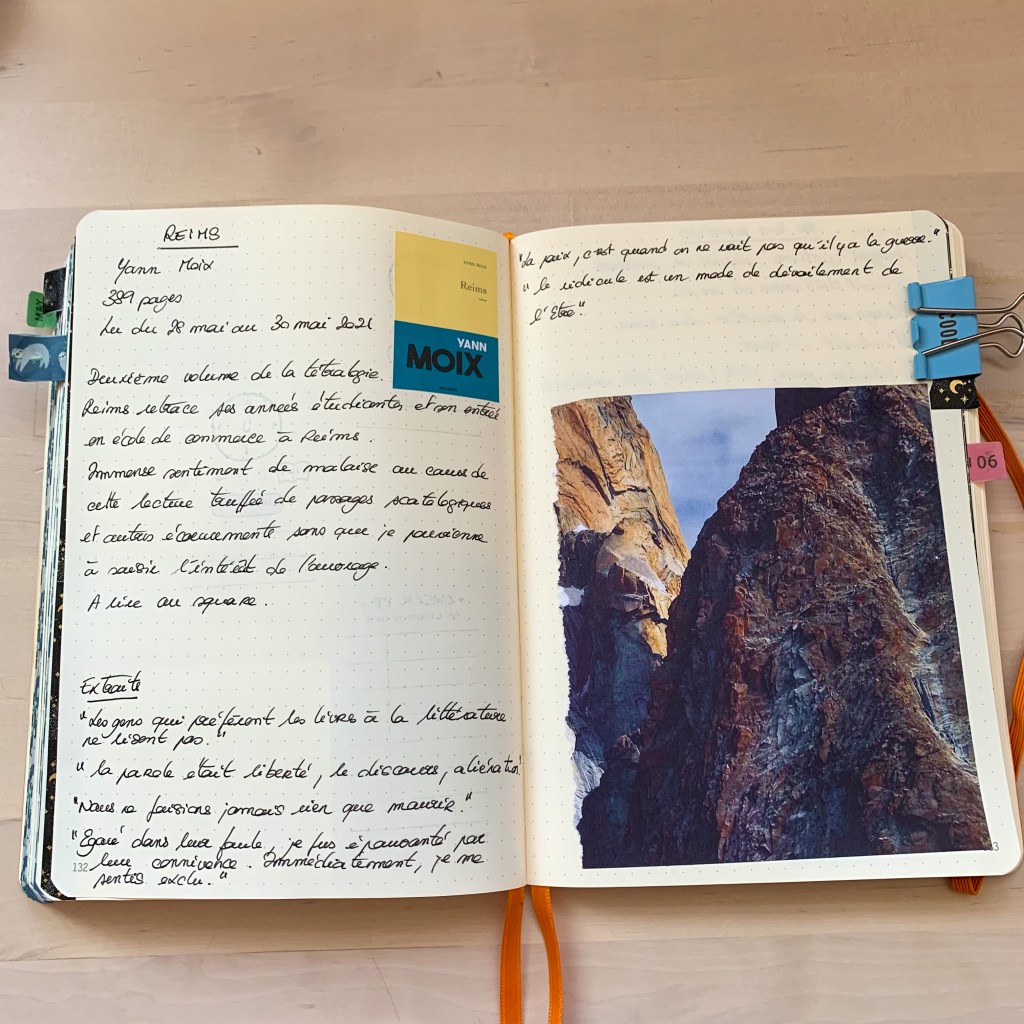 REIMS
Yann Moix
389 pages
Lu du 28 mai au 30 mai 2021
Deuxième volume de la tétralogie.
Reims retrace ses années étudiantes et son entrée
en école de commerce à Reims.
Immense sentiment de malaise au cours de
cette lecture truffée de passages scatologiques
et autres écœurements sans que je parvienne
à saisir l'intérêt de l'ouvrage.
A lire au square.
Extraits
"Les gens qui préfèrent les livres à la littérature
ne lisent pas."
"la parole était liberté, le discours, aliénation"
"Nous ne faisions jamais rien que mourir."
"Egaré dans leur foule, je fus épouvanté par
leur connivence. Immédiatement, je me
sentis exclu."
132
YANN MOIX
Reims
YANN
MOIX
GRASSET
"La paix, c'est quand on ne voit pas qu'il y a la guerre."
"le ridicule est un mode de dévoilement de
l'Etre."
MAY
COOL
06
3